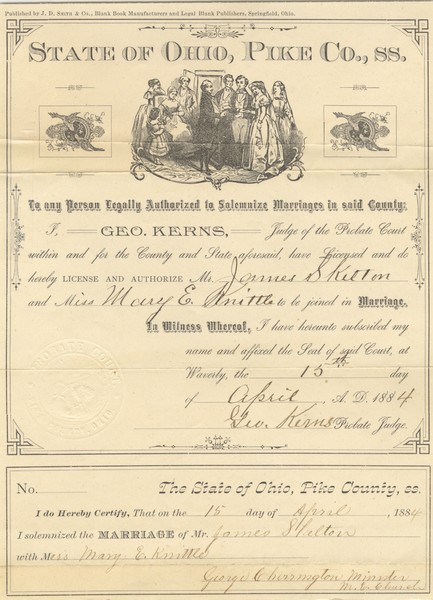 Published by J. D. Smith & Co., Blank Book Manufacturers and Legal Blank Publishers, Springfield, Ohio.
STATE OF OHIO, PIKE CO., SS.
To any Person Legally Authorized to Solemnize Marriages in said County:
I, GEO. KERNS, Judge of the Probate Court
within and for the County and State aforesaid, have Licensed and do
hereby LICENSE AND AUTHORIZE Mr James Skelton
and Miss Mary E. Knittle to be joined in Marriage.
In Witness Whereof, I have hereunto subscribed my
name and affixed the Seal of said Court, at
Waverly, the 15th day
of April A. D. 1884
Geo. Kerns Probate Judge.
No. The State of Ohio, Pike County, ss.
I do Hereby Certify, That on the 15 day of April, 1884
I solemnized the MARRIAGE of Mr. James Skelton
with Miss Mary E Knittle
George Cherrington Minister
M. E. Church